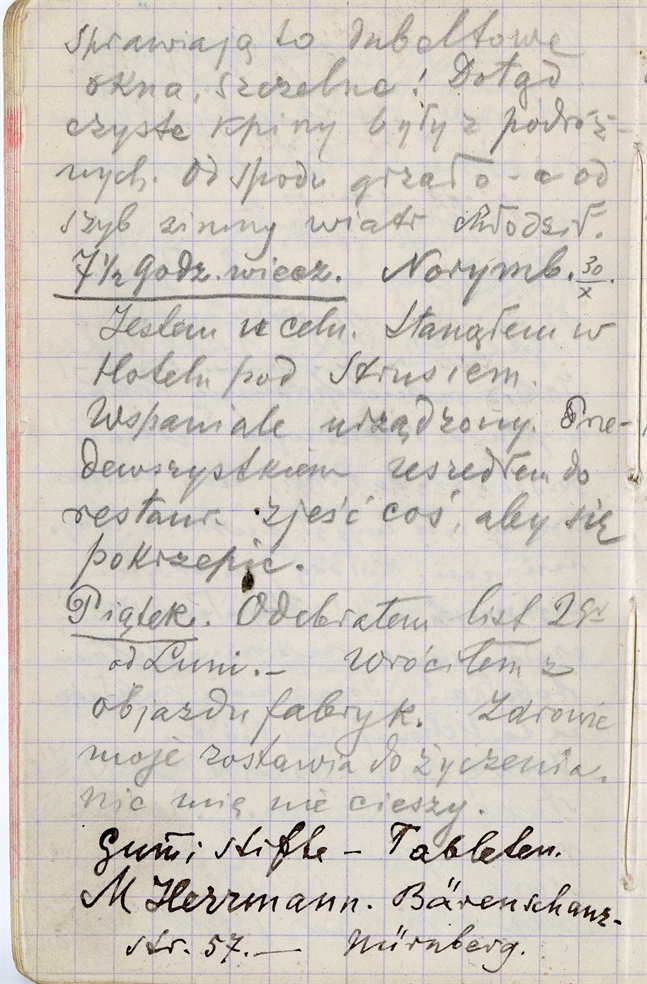 sprawiają to dubeltowe
okna, szczelne! Dotąd
czyste kpiny były z podróż-
nych. Od spodu grzało - a od
szyb zimny wiatr chłodził.
7 1/2 godz. wiecz. Norymb. 30/X.
Jestem u celu. Stanąłem w
Hotelu pod Strusiem.
Wspaniale urządzony. Prze-
dewszystkiem zeszedłem do
restaur. zjeść coś, aby się
pokrzepić.
Piątek. Odebrałem list
od Luni. - Wróciłem z
objazdu fabryk. Zdrowie
moje zostawia do życzenia.
Nic mię nie cieszy.
Gum̄i stifte - Tabletten.
M Herrmann. Bärenschanz-
str. 57. — Nürnberg.